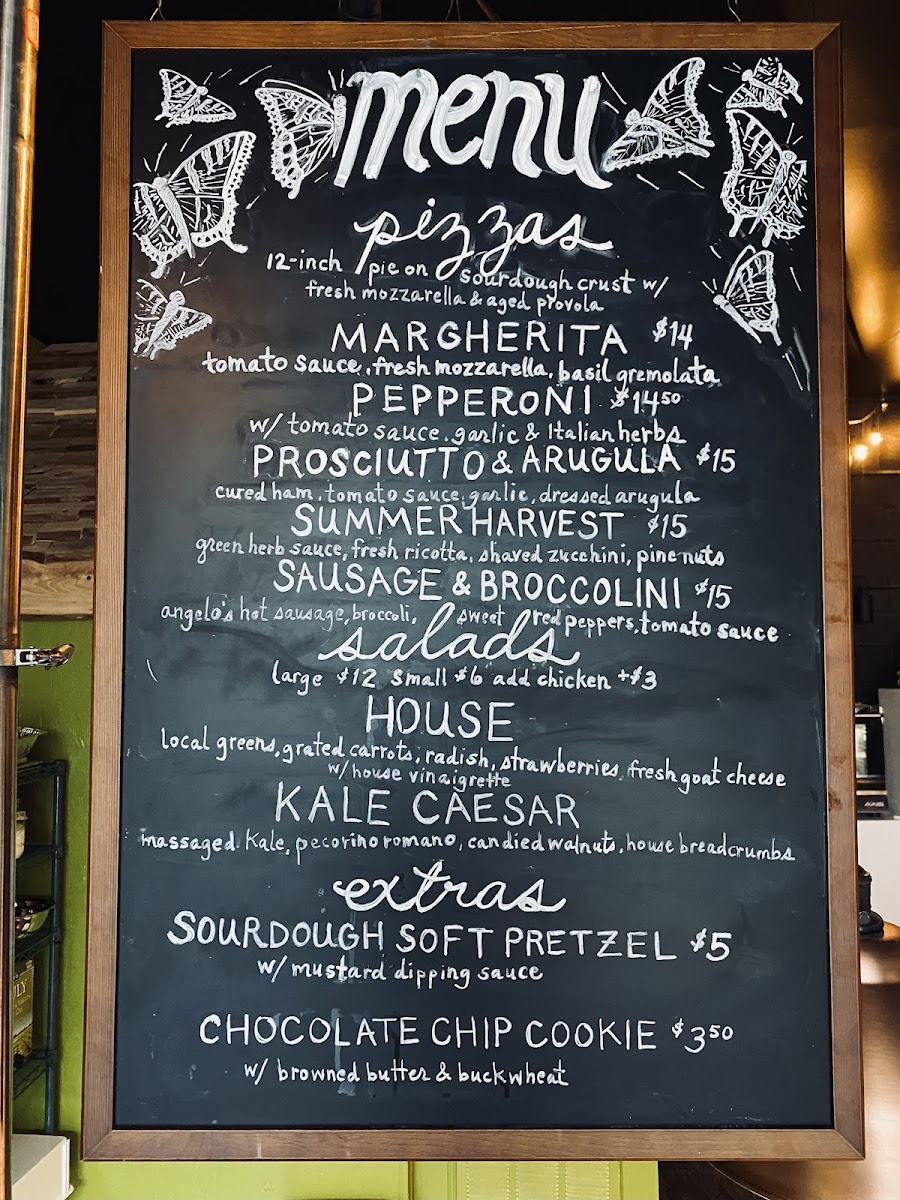 menu
pizzas
12-inch pie on sourdough crust w/
fresh mozzarella & aged provola
MARGHERITA $14
tomato sauce, fresh mozzarella, basil gremolata
PEPPERONI $14⁵⁰
w/ tomato sauce, garlic & Italian herbs
PROSCIUTTO & ARUGULA $15
cured ham, tomato sauce, garlic, dressed arugula
SUMMER HARVEST $15
green herb sauce, fresh ricotta, shaved zucchini, pine nuts
SAUSAGE & BROCCOLINI $15
angelo's hot sausage, broccoli, sweet red peppers, tomato sauce
salads
large $12 small $6 add chicken +$3
HOUSE
local greens, grated carrots, radish, strawberries, fresh goat cheese
w/ house vinaigrette
KALE CAESAR
massaged kale, pecorino romano, candied walnuts, house breadcrumbs
extras
SOURDOUGH SOFT PRETZEL $5
w/ mustard dipping sauce
CHOCOLATE CHIP COOKIE $3⁵⁰
w/ browned butter & buckwheat